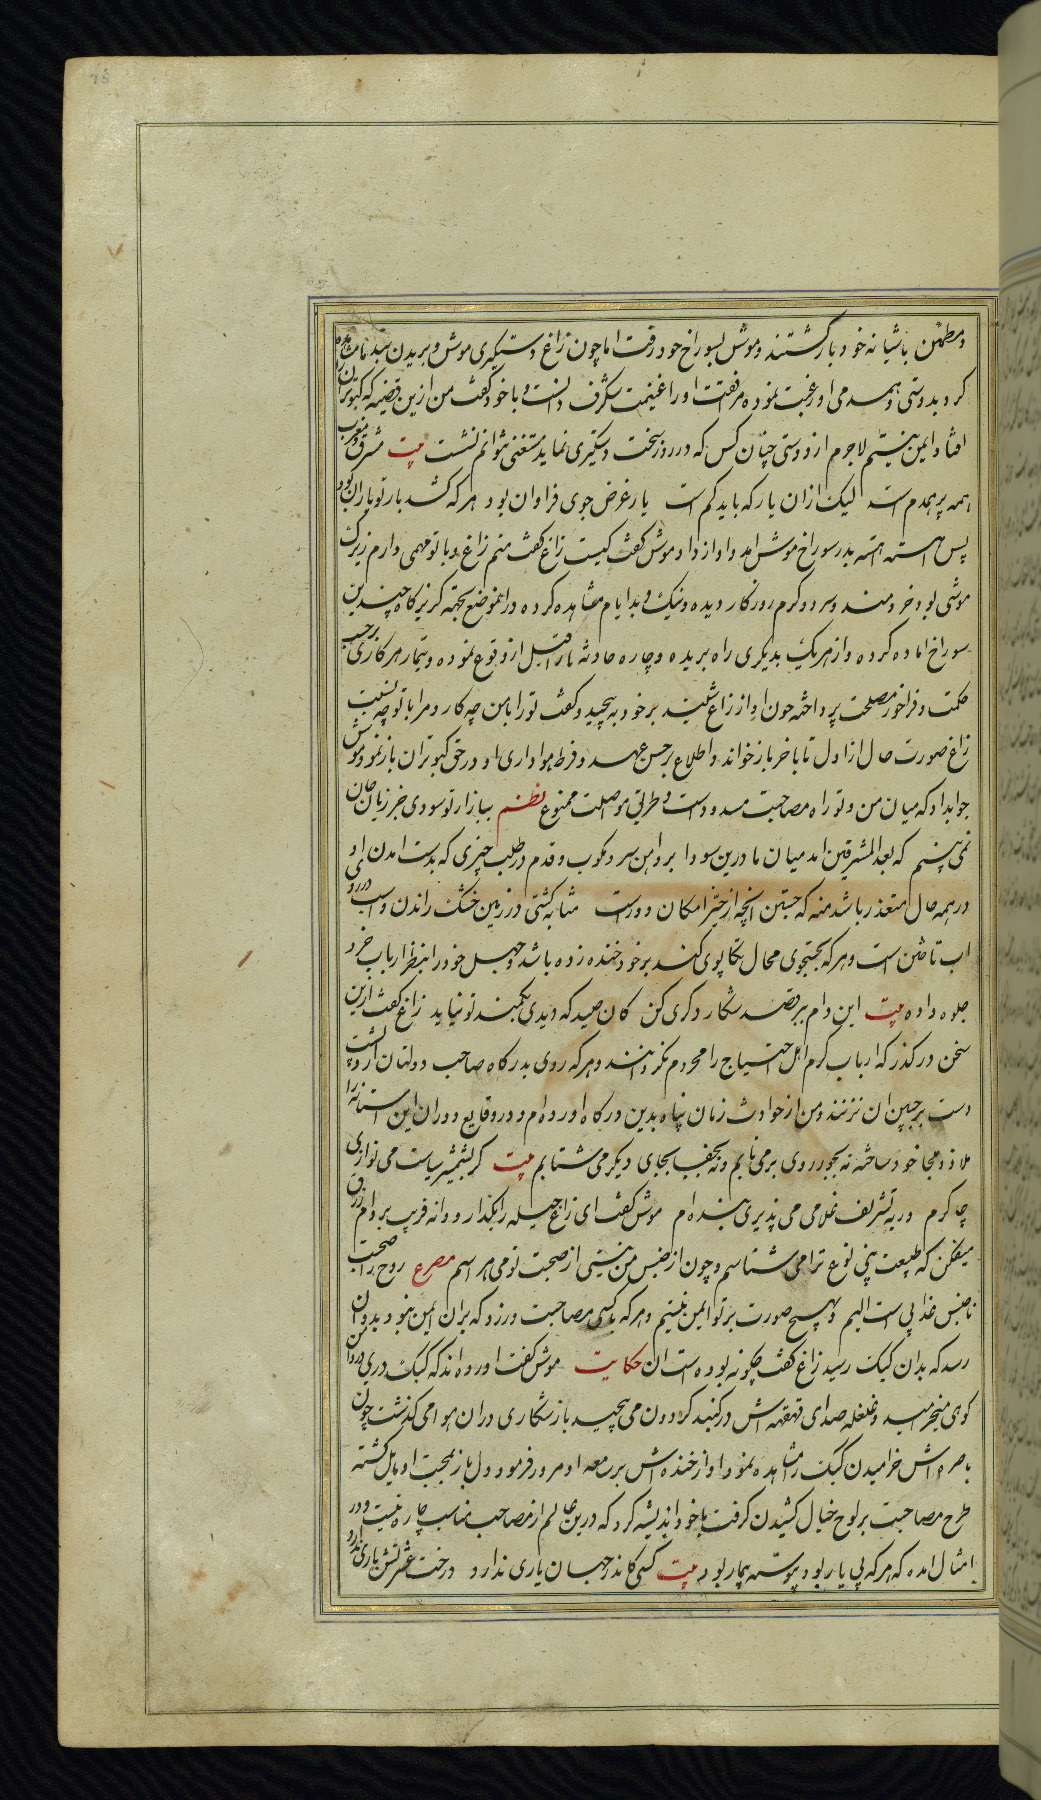 و مطمئن باشیانه خود بازگشتند و موش بسوراخ خود رفت اما چون زاغ دستگیری موش و بریدن بندها مشاهده
کرد بدوستی و همدمی او رغبت نموده مرافقت او را غنیمت شگرف دانست و با خود گفت من ازین قضیه که کبوتران را
افتاد ایمن نیستم لاجرم از دوستی چنان کس که در روز سخت دستگیری نماید مستغنی نتوانم نشست بیت مشرق و مغرب
همه پر همدم است لیک ازان یار که باید کم است یار غرض جوی فراوان بود هر که کشد بار تو یار آن بود
پس اهسته اهسته بدر سوراخ موش امد و اواز داد موش گفت کیست زاغ گفت منم زاغ و با تو مهمی دارم زیرک
موشی بود خردمند و سرد و گرم روزگار دیده و نیک و بد ایام مشاهده کرده در انموضع بجهته گریزگاه چندین
سوراخ اماده کرده و از هر یک بدیگری راه بریده و چاره حادثه را قبل از وقوع نموده و تیمار هر کاری بر حسب
حکمت و فراخور مصلحت پرداخته چون اواز زاغ شنید بر خود به پیچید و گفت تو را با من چه کار و مرا با تو چه نسبت
زاغ صورت حال از اول تا باخر باز خواند و اطلاع بر حسن عهد و فرط هواداری او در حق کبوتران باز نمود موش
جوابداد که میان من و تو راه مصاحبت مسدودست و طریق مواصلت ممنوع نظم ببازار تو سودی جز زیان جان
نمی بینم که بعد المشرقین امد میان ما درین سودا برو اهن سرد مکوب و قدم در طلب چیزی که بدست امدن او
در همه حال متعذر باشد منه که جستن انچه از حیز امکان دورست مثابه کشتی در زمین خشک راندن و اسب در روی
اب تاختن است و هر که بجستجوی محال تکاپوی کند بر خود خنده زده باشد و جهل خود را در نظر ارباب خرد
جلوه داده بیت این دام ببر قصد شکار دگری کن کان صید که دیدی بکمند تو نیاید زاغ گفت ازین
سخن درگذر که ارباب کرم اهل احتیاج را محروم نگردانند و هر که روی بدرگاه صاحب دولتان ارد پشت
دست بر جبین ان نزنند و من از حوادث زمان پناه بدین درگاه اورده ام و در وقایع دوران این استانه را
ملاذ و ملجا خود ساخته نه بجور روی بر می تابم و نه بجفا بجای دیگر می شتابم بیت گر بشمشیر سیاست می نوازی
چاکرم ور به تشریف غلامی می پذیری بنده ام موش گفت ای زاغ حیله را بگذار و دانه فریب بر دام زرق
میفکن که طبیعت بنی نوع ترا می شناسم و چون از جنس من نیستی از صحبت تو می هراسم مصرع روح را صحبت
ناجنس عذابی است الیم و بهیچ صورت بر تو ایمن نیستم و هر که با کسی مصاحبت ورزد که بر ان ایمن نبود بدو ان
رسد که بدان کبک رسید زاغ گفت چگونه بوده است ان حکایت موش گفت اورده اند که کبک دری در دامن
کوهی میخرامید و غلغله صدای قهقهه اش در گنبد گردون می پیچید باز شکاری دران هوا می گذشت چون
باصره اش خرامیدن کبک را مشاهده نمود و اواز خنده اش بر سامعه او مرور فرمود دل باز بمحبت او مایل گشته
طرح مصاحبت بر لوح خیال کشیدن گرفت با خود اندیشه کرد که درین عالم از مصاحب مناسب چاره نیست و در
امثال امده که هر که بی یار بود پیوسته بیمار بود بیت کسی کاندر جهان یاری ندارد درخت عشرتش باری ندارد